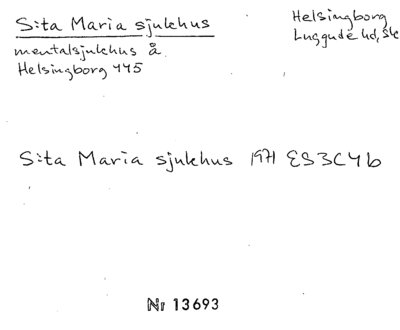 S:ta Maria sjukhus
mentalsjukhus å
Helsingborg 445
Helsingborg
Luggude hd, Sk
S:ta Maria sjukhus 1971 ES3C4b
Nr 13693